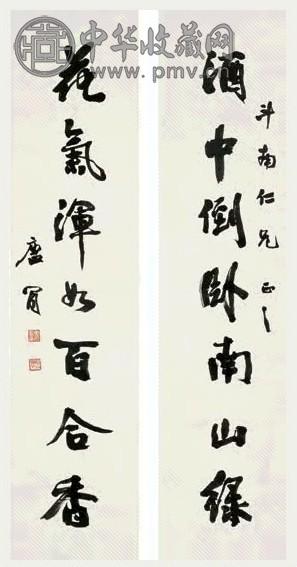 中华收藏网
www.pmv.cn
斗南仁兄正之
酒中倒卧南山綠
花氣渾如百合香
唐肎